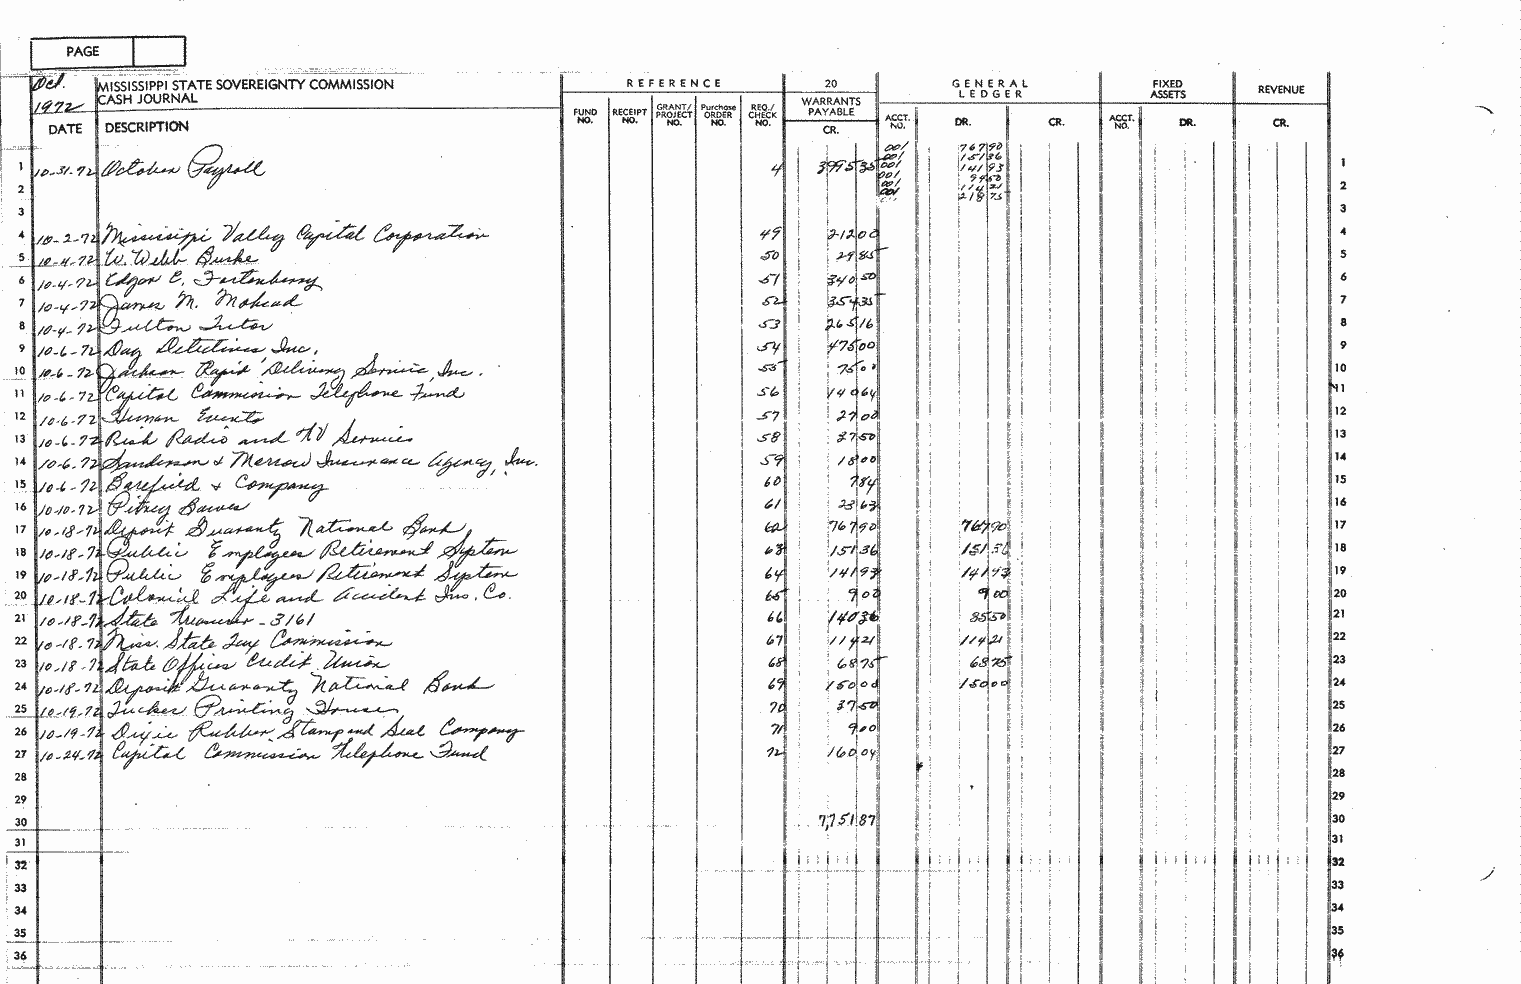 PAGE
Oct. 1972 MISSISSIPPI STATE SOVEREIGNTY COMMISSION CASH JOURNAL
REFERENCE 20 GENERAL LEDGER FIXED ASSETS REVENUE
DATE DESCRIPTION FUND NO. RECEIPT NO. GRANT/ PROJECT NO. Purchase ORDER NO. REQ./ CHECK NO. WARRANTS PAYABLE CR. ACCT. NO. DR. CR. ACCT. NO. DR. CR.
001 76790
001 15136
1 10-31-72 October Payroll 4 399535 001 14193 1
001 9450
2 001 11421 2
001 21875
3 3
4 10-2-72 Mississippi Valley Capital Corporation 49 21200 4
5 10-4-72 W. Webb Burke 50 2985 5
6 10-4-72 Edgar C. Fortenberry 51 34050 6
7 10-4-72 James M. Mohead 52 35435 7
8 10-4-72 Fulton Tutor 53 26516 8
9 10-6-72 Day Detectives, Inc. 54 47500 9
10 10-6-72 Jackson Rapid Delivery Service, Inc. 55 7500 10
11 10-6-72 Capitol Commission Telephone Fund 56 14064 11
12 10-6-72 Human Events 57 2700 12
13 10-6-72 Rish Radio and TV Services 58 3750 13
14 10-6-72 Sanderson & Morrow Insurance Agency, Inc. 59 1800 14
15 10-6-72 Barefield & Company 60 784 15
16 10-10-72 Pitney Bowes 61 2363 16
17 10-18-72 Deposit Guaranty National Bank 62 76790 76790 17
18 10-18-72 Public Employees Retirement System 63 15136 15136 18
19 10-18-72 Public Employees Retirement System 64 14193 14193 19
20 10-18-72 Colonial Life and Accident Ins. Co. 65 900 900 20
21 10-18-72 State Treasurer - 3161 66 14036 8550 21
22 10-18-72 Miss. State Tax Commission 67 11421 11421 22
23 10-18-72 State Offices Credit Union 68 6875 6875 23
24 10-18-72 Deposit Guaranty National Bank 69 15000 15000 24
25 10-19-72 Tucker Printing House 70 3750 25
26 10-19-72 Dixie Rubber Stamp and Seal Company 71 900 26
27 10-24-72 Capitol Commission Telephone Fund 72 16004 27
28 28
29 29
30 7,75187 30
31 31
32 32
33 33
34 34
35 35
36 36